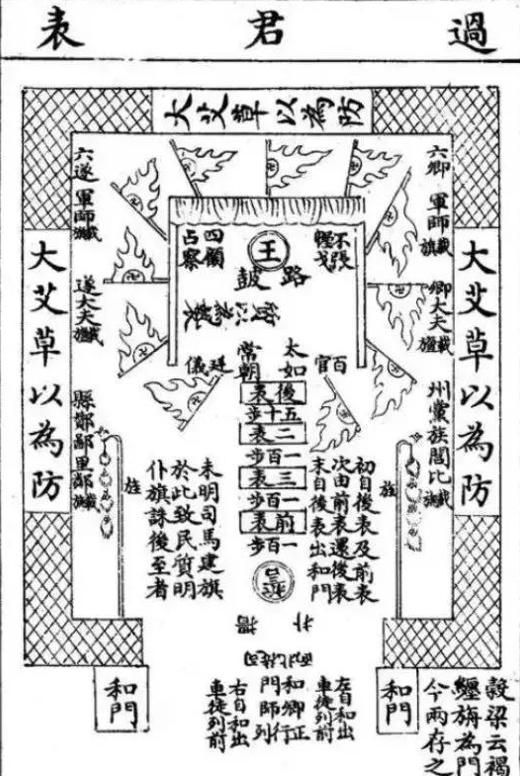 過君表
大艾草以為防
六卿軍師旗
卿大夫
州黨族閭比
大艾草以為防
六遂軍師
遂大夫
縣鄙里
大艾草以為防
王
路鼓
太常
如朝
百官
廷儀
後表
五十步
二表
一百步
三表
一百步
前表
一百步
初自後表及前表
次由前表還後表
末自後表出和門
未明司馬建旗
於此致民質明
仆旗誅後至者
左自和出
車徒列前
和卿正行
門師列
右自和出
車徒列前
和門
和門
穀梁云褐
纏旃為門
今兩存之